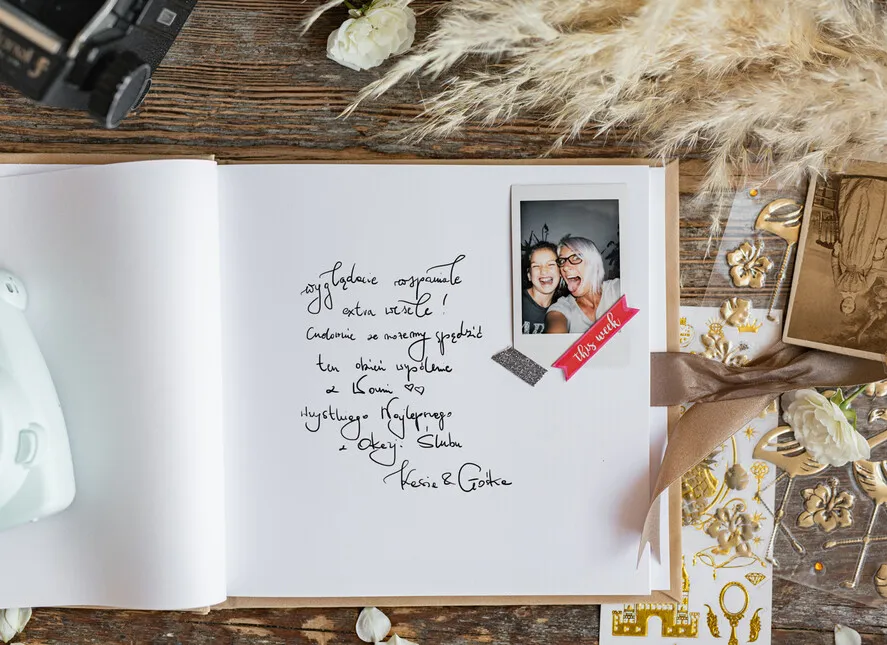 wyglądacie wspaniale
extra wesele!
Cudownie że możemy spędzić
ten dzień wspólnie
z Wami ♡♡
Wszystkiego Najlepszego
z Okazji Ślubu
Kasia & Gośka
this week